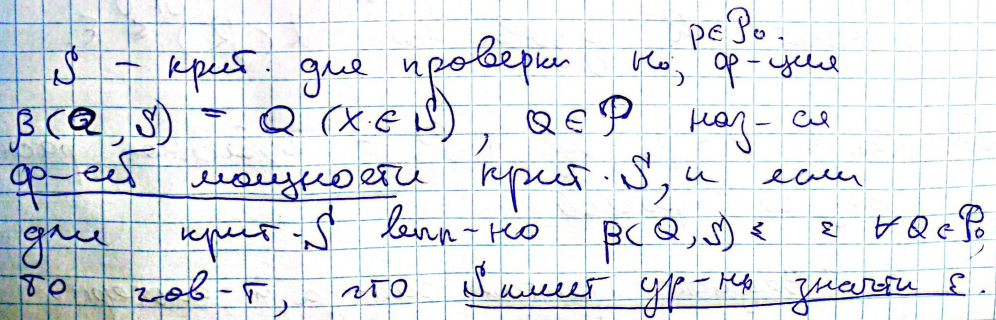 P∈𝒫₀.
S – крит. для проверки H₀, ф-ция
β(Q, S) = Q (X ∈ S), Q ∈ 𝒫 наз-ся
ф-ей мощности крит. S, и если
для крит. S вып-но β(Q, S) ≤ ε ∀ Q ∈ 𝒫₀,
то гов-т, что S имеет ур-нь значти ε.